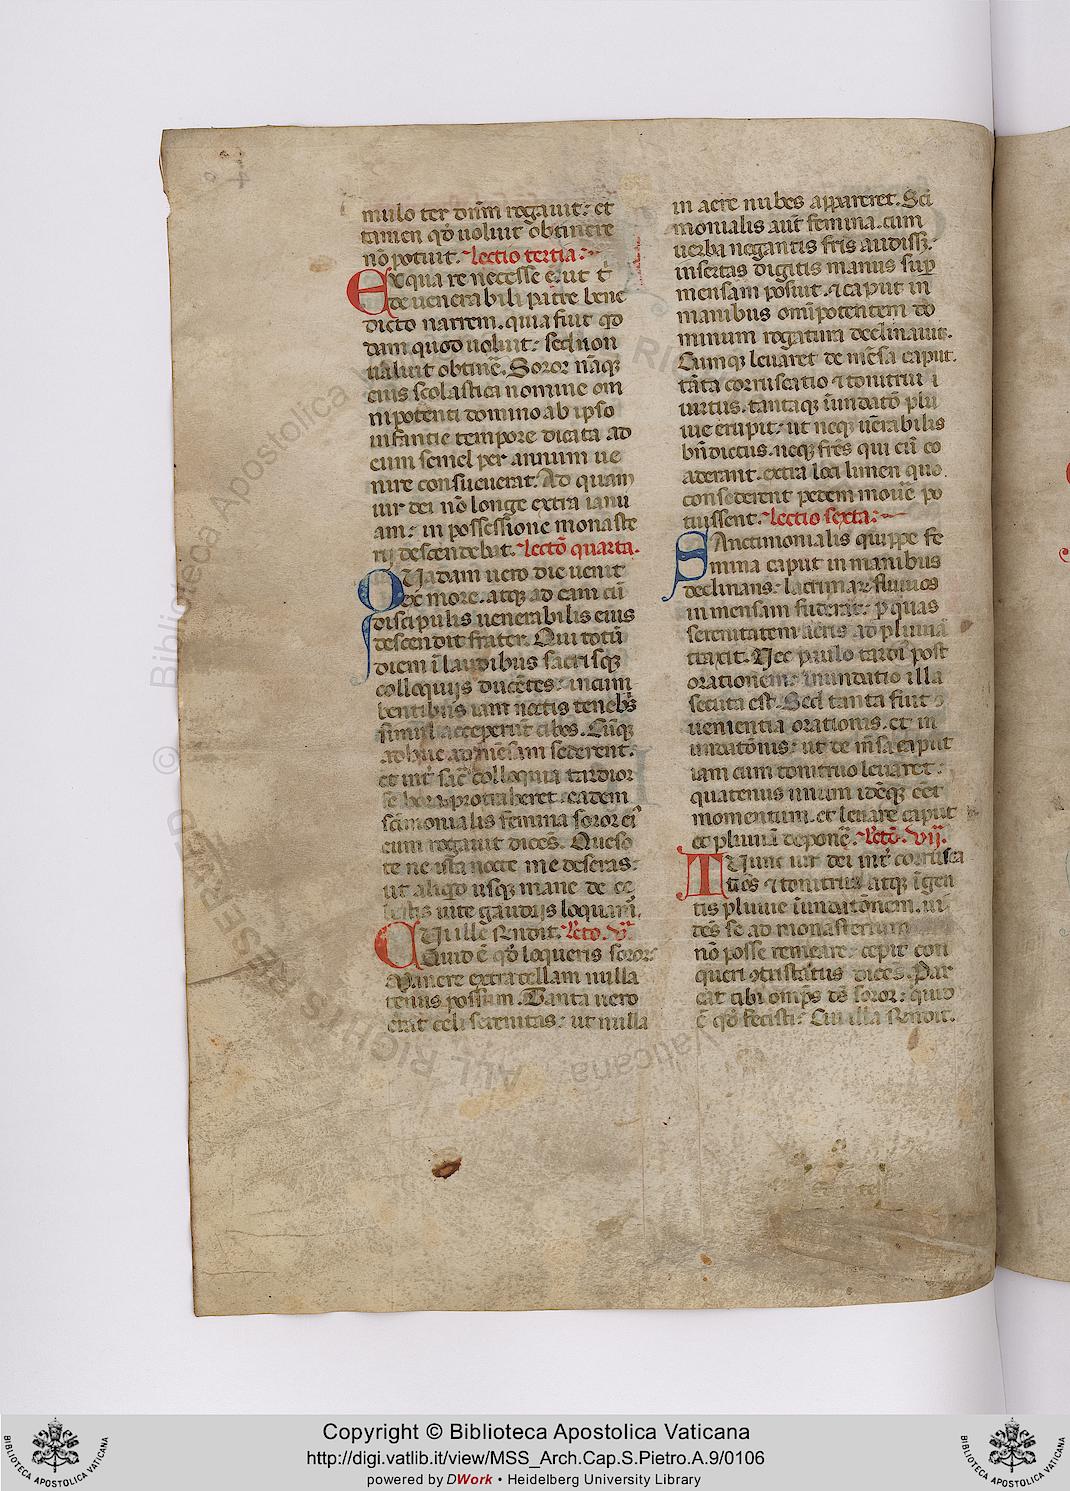 mulo ter dnm̄ rogauit: et
tamen qđ uoluit obtinere
nō potuit. Lectio tertia:
Ex qua re necesse ē. ut t'
de uenerabili patre bene
dicto narrem. quia fuit qđ
dam quod uoluit: sed non
ualuit obtinē. Soror nāq;
eius scolastica nomine om
nipotenti domino ab ipso
infantie tempore dicata ad
eum semel per annum ue
nire consueuerat. Ad quam
uir dei nō longe extra ianu
am: in possessione monaste
rij descendebat. Lectō quarta.
Quadam uero die uenit
ex more. atq; ad eam cū
discipulis uenerabilis eius
descendit frater. Qui totū
diem ī laudibus sacrisq;
colloquijs ducētes: incum
bentibus iam noctis tenebs
simul acceperūt cibos. Cūq;
adhuc ad mēsam sederent.
et int' sac̄ colloquia tardior
se hora protraheret: eadem
scīmonialis femina soror ei'
eum rogauit dicēs. Queso
te ne ista nocte me deseras:
ut aliqđ usq; mane de ce
lestis uite gaudijs loquam̄.
Cui ille Rn̄dit. Lēto. v.ᵃ
Quid ē qđ loqueris soror:
Manere extra cellam nulla
tenus possum. Tanta uero
erat celi serenitas: ut nulla
in aere nubes appareret. Scī
monialis aut̄ femina. cum
uerba negantis frīs audiss;.
insertas digitis manus sup̄
mensam posuit. ⁊ caput in
manibus omīpotentem do
minum rogatura declinauit.
Cumq; leuaret de mēsa caput.
tāta corruscatio ⁊ tonitrui i
uirtus. tantaq; īundatō plu
uie erupit: ut neq; uēerabilis
bn̄dictus. neq; frēs qui cū eo
aderant. extra loci limen quo
consederent pedem mouē po
tuissent. Lectio sexta:
Sanctimonialis quippe fe
mina caput in manibus
declinans: lacrimaꝝ fluuios
in mensam fuderat: ꝑ quas
serenitatem aeris ad pluuiā
traxit. Nec paulo tardi' post
orationem: inundatio illa
secuta est. Sed tanta fuit ꝯ
uenientia orationis. et in
undatōnis: ut de mēsa caput
iam cum tonitruo leuaret:
quatenus unum idēq; cēt
momentum. et leuare caput
et pluuiā deponē. Lētō. vij.
Tunc uir dei int' corrusca
tiōes ⁊ tonitrua atq; īgen
tis pluuie īundatōnem. ui
dēs se ad monasterium
nō posse remeare: cepit con
queri ꝯtristatus dicēs. Par
cat tibi omp̄s dē soror: quid
ē qđ fecisti: Cui illa Rn̄dit.
Copyright © Biblioteca Apostolica Vaticana
http://digi.vatlib.it/view/MSS_Arch.Cap.S.Pietro.A.9/0106
powered by DWork • Heidelberg University Library
BIBLIOTECA APOSTOLICA VATICANA
BIBLIOTECA APOSTOLICA VATICANA
© Biblioteca Apostolica Vaticana
ALL RIGHTS RESERVED